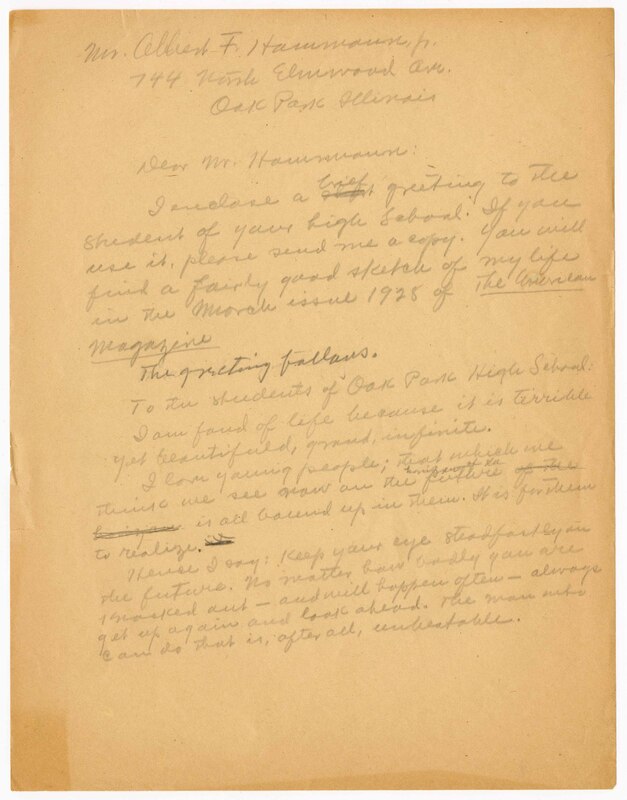 Mr. Albert F. Hammann, jr.
744 North Elmwood Ave.
Oak Park Illinois
Dear Mr. Hammann:
I enclose a brief greeting to the
student of your high School. If you
use it, please send me a copy. You will
find a fairly good sketch of my life
in the March issue 1928 of The American
Magazine
The greeting follows.
To the students of Oak Park High School:
I am fond of life because it is terrible
yet beautiful, grand, infinite.
I love young people; that which we
think we see now on the future of the
is all bound up in them. It is for them
to realize.
Hence I say: Keep your eye steadfastly on
the future. No matter how badly you are
knocked out — and will happen often — always
get up again and look ahead. The man who
can do that is, after all, unbeatable.